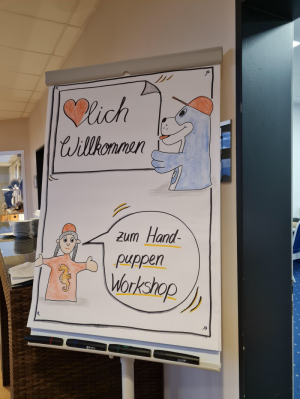 ❤lich
Willkommen
zum Hand-
puppen
Workshop